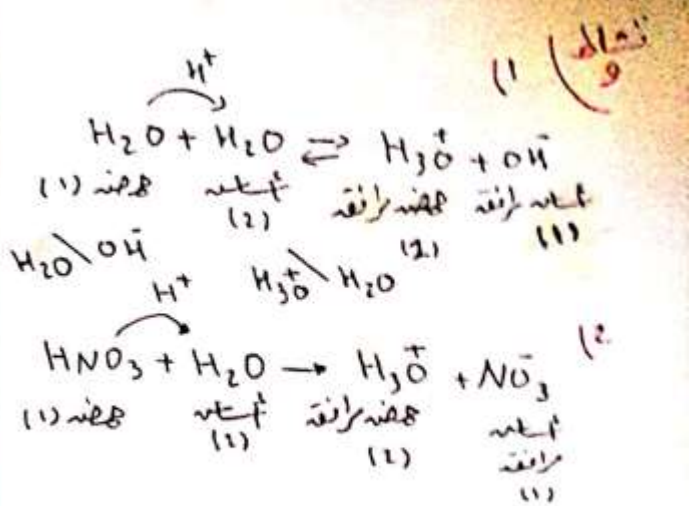 نشاط و) 1)
H⁺
H₂O + H₂O ⇌ H₃O⁺ + OH⁻
حمض (1) أساس (2) حمض مرافق (2) أساس مرافق (1)
H₂O\OH⁻ H₃O⁺\H₂O
H⁺
2) HNO₃ + H₂O → H₃O⁺ + NO₃⁻
حمض (1) أساس (2) حمض مرافق (2) أساس
مرافق
(1)